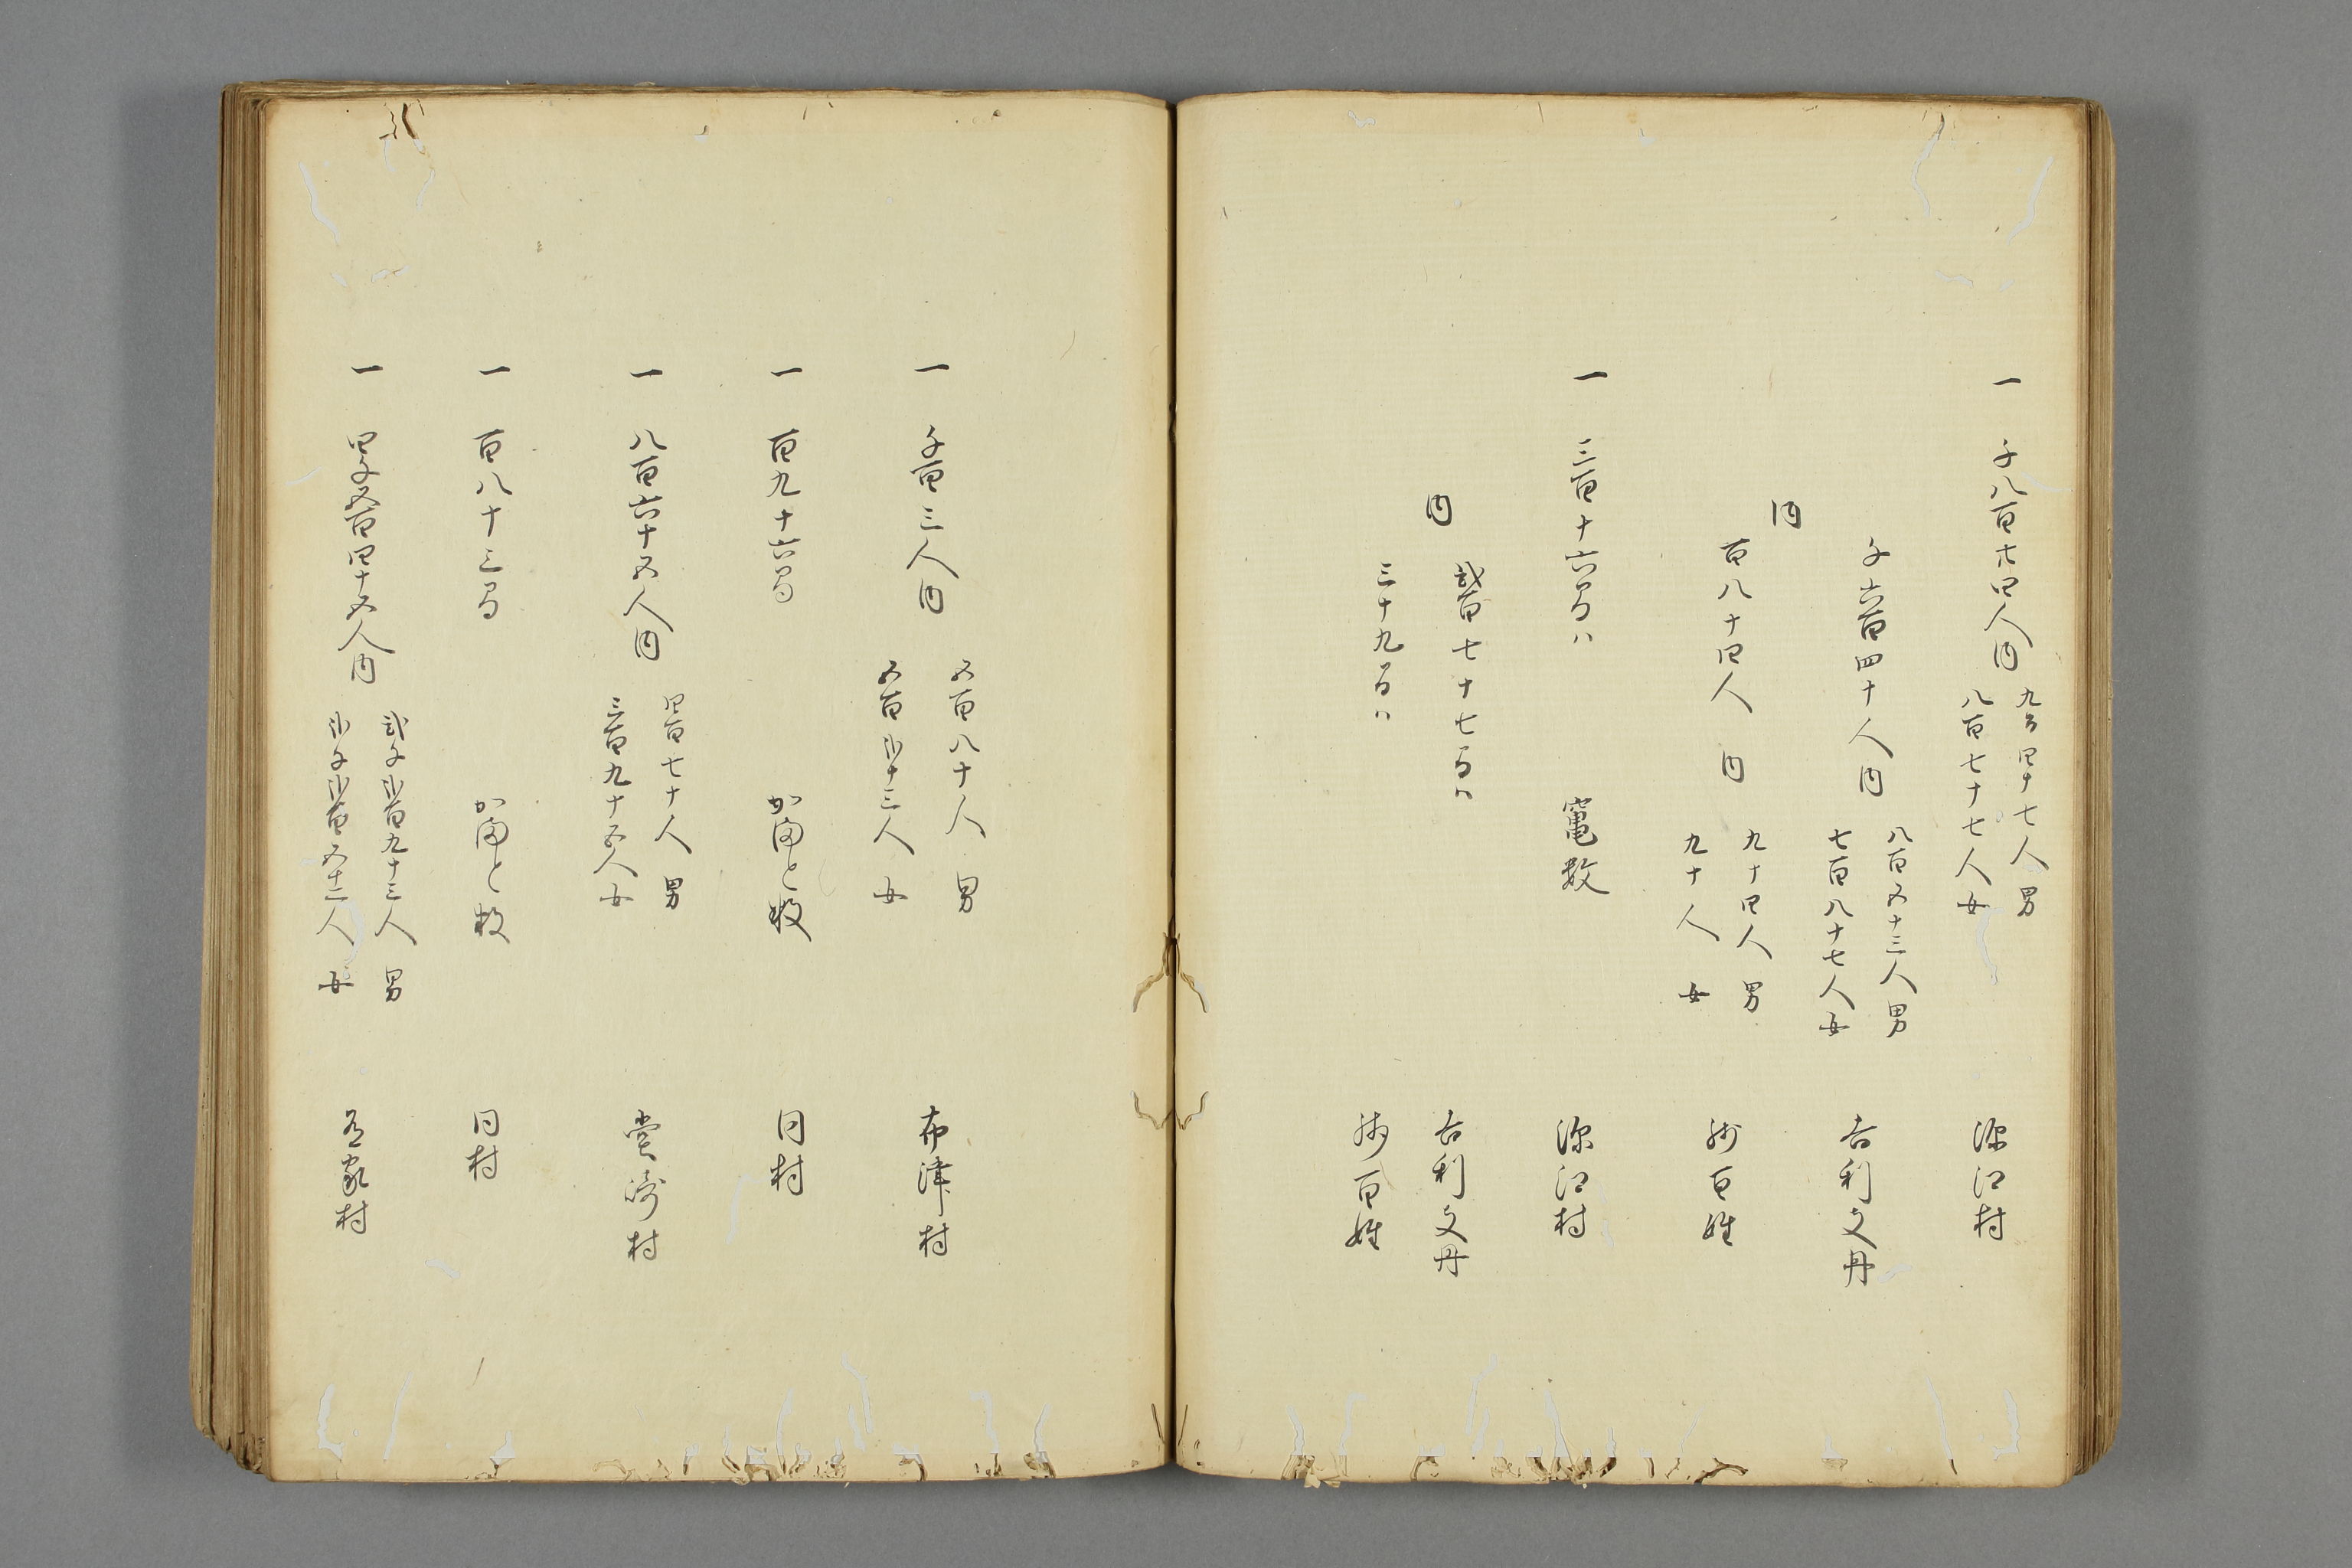 一 千八百廿四人内 九百四十七人男 深江村
八百七十七人女
内
千六百四十人内 八百五十三人男 吉利支丹
七百八十七人女
百八十四人内 九十四人男 残百姓
九十人女
一 三百十六間ハ 竈数 深江村
内
弐百七十七間ハ 吉利支丹
三十九間ハ 残百姓
一 千百三人内 五百八十人男 布津村
五百弐十三人女
一 百九十六間 かまと数 同村
一 八百六十五人内 四百七十人男 堂崎村
三百九十五人女
一 百八十三間 かまと数 同村
一 四千五百四十五人内 弐千弐百九十三人男 有家村
弐千弐百五十二人女